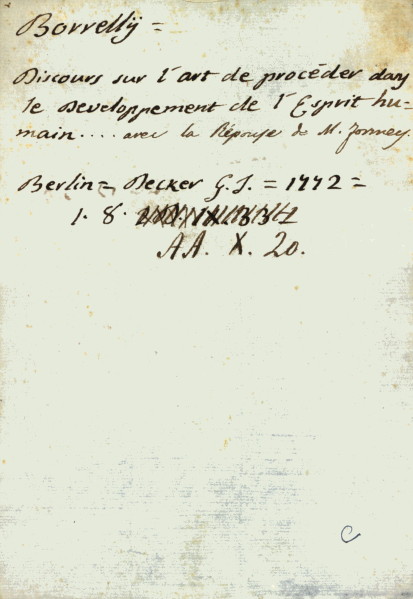 Borrellÿ =
Discours sur l'art de procéder dans
le Developpement de l'Esprit hu=
main .... avec la Réponse de M. Formey.
Berlin = Decker G. J. = 1772 =
1. 8.
AA. X. 20.
C